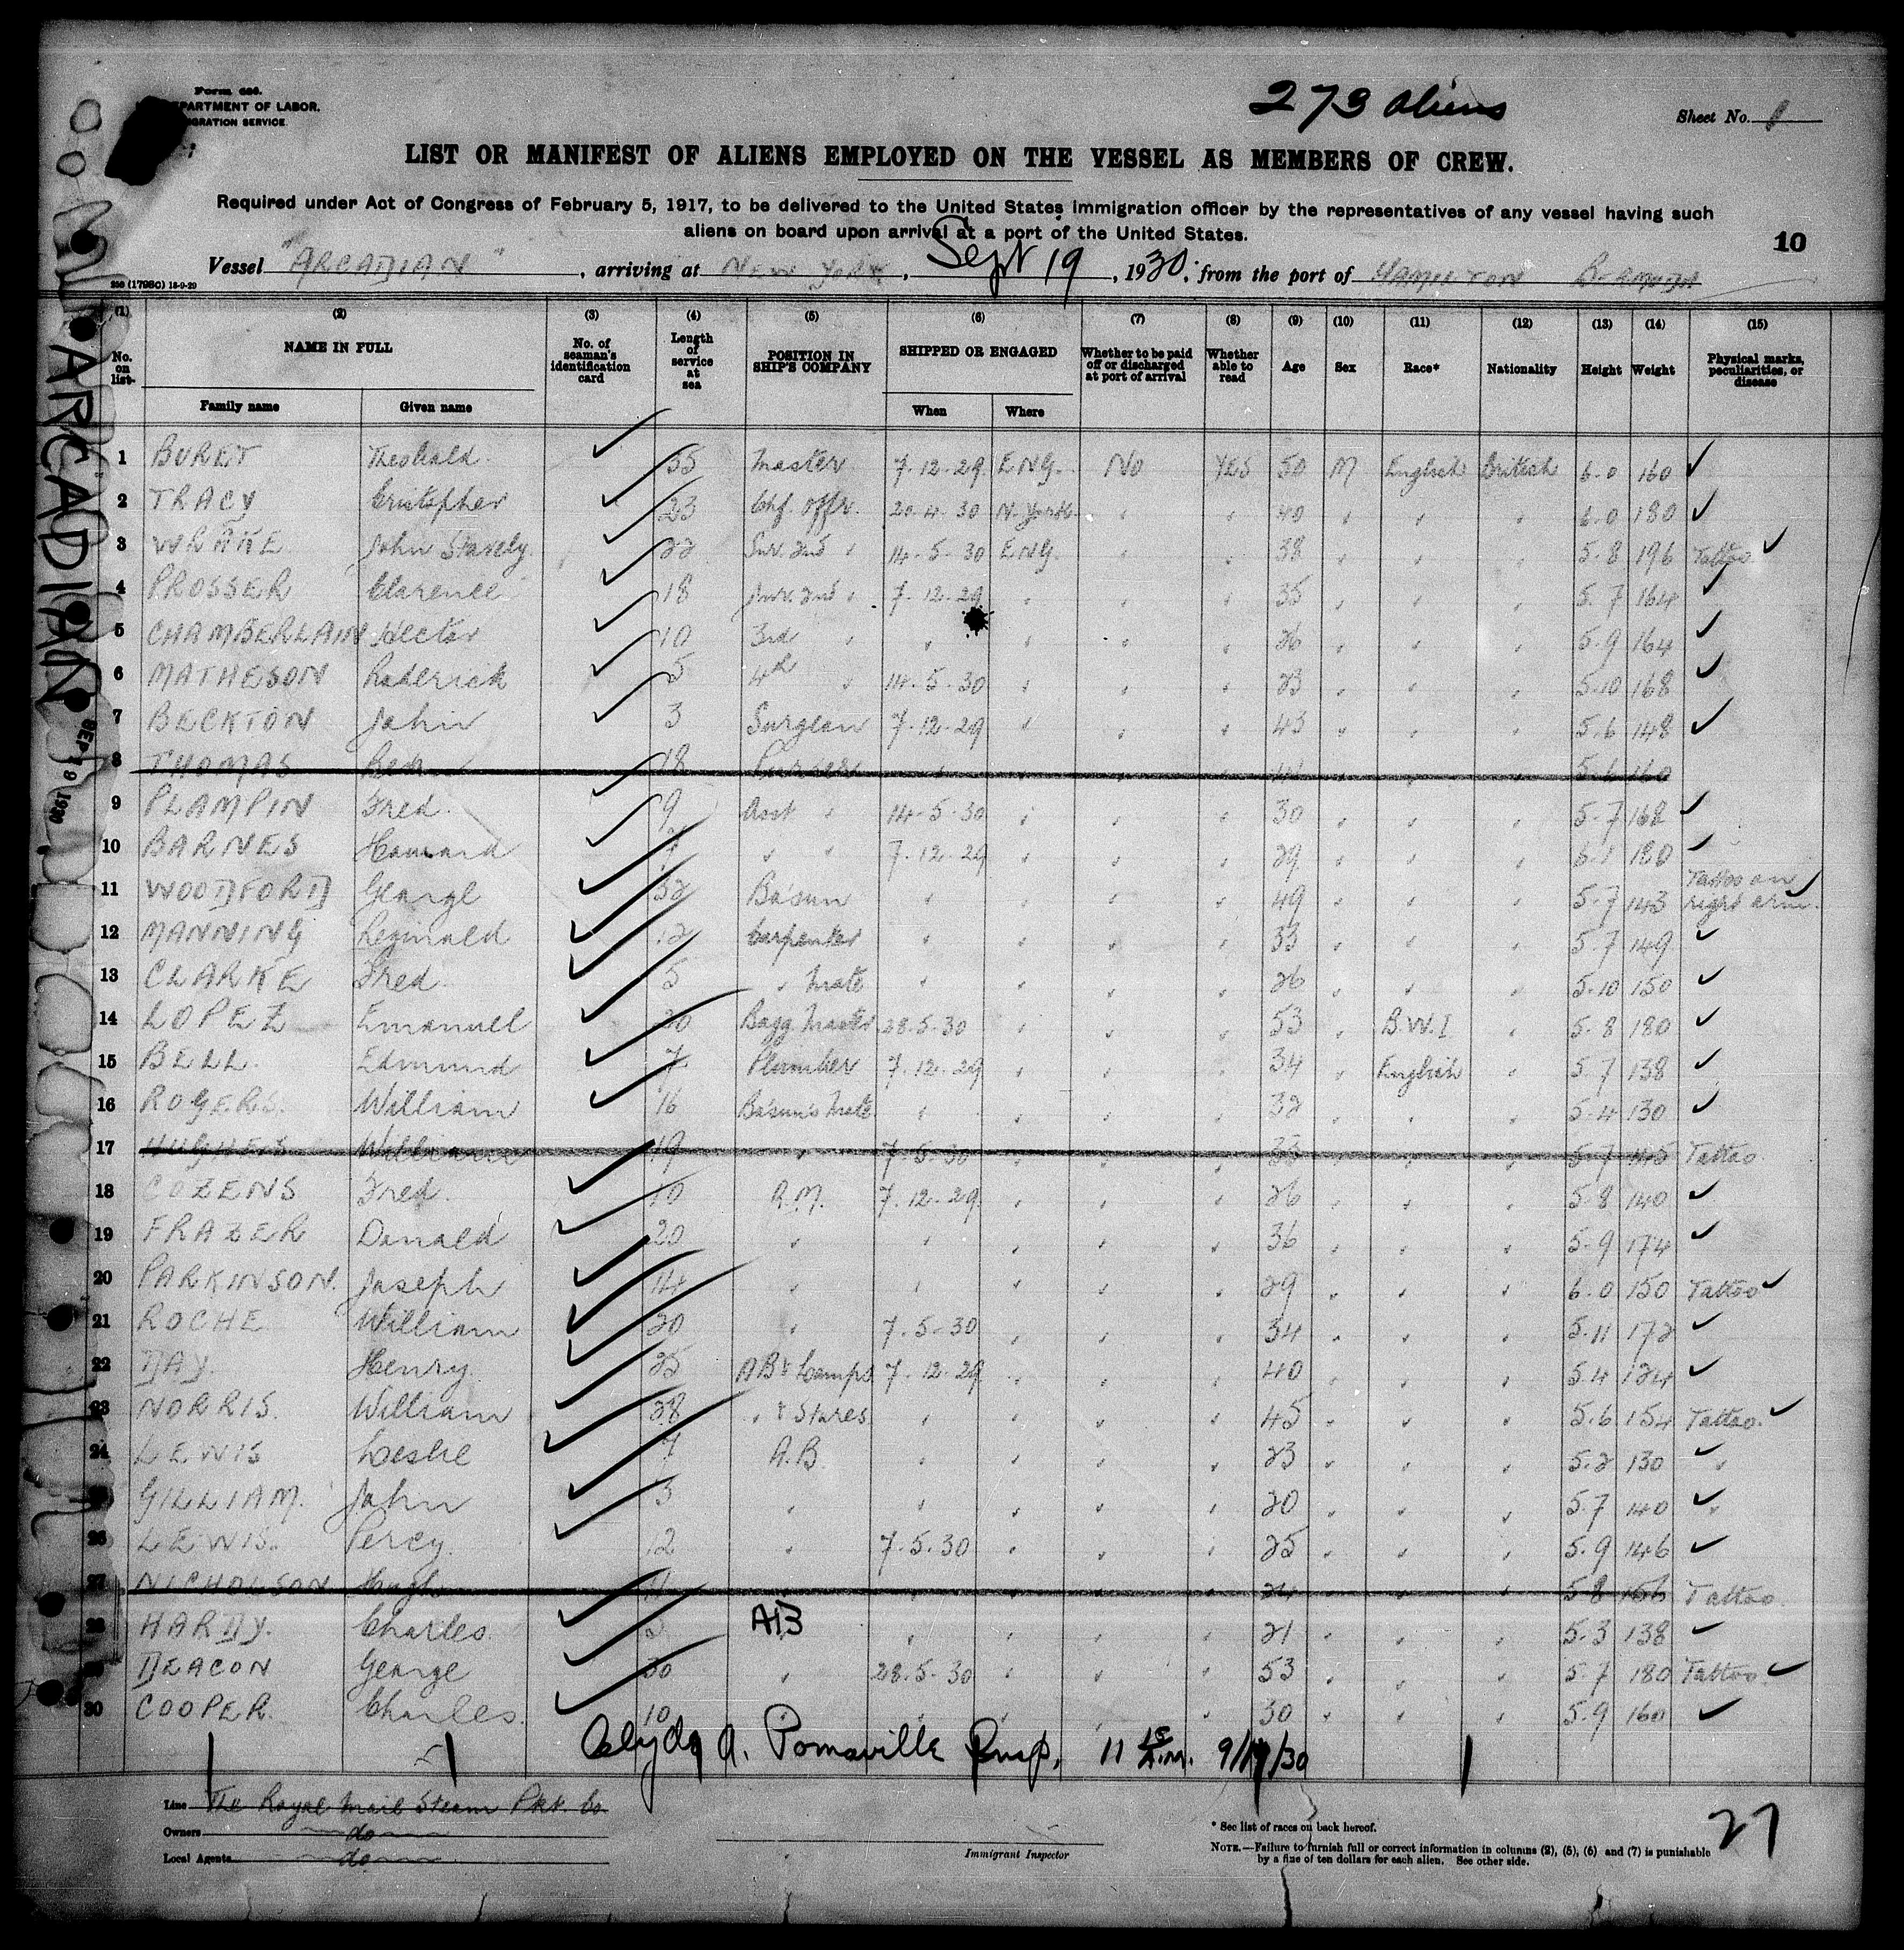 Form 680.
DEPARTMENT OF LABOR.
IMMIGRATION SERVICE
273 aliens
Sheet No. 1
LIST OR MANIFEST OF ALIENS EMPLOYED ON THE VESSEL AS MEMBERS OF CREW.
Required under Act of Congress of February 5, 1917, to be delivered to the United States immigration officer by the representatives of any vessel having such
aliens on board upon arrival at a port of the United States.
10
Vessel "ARCADIAN", arriving at NEW YORK, Sept 19, 1930, from the port of HAMILTON BERMUDA
250 (1798C) 18-9-29
ARCADIAN
SEP 19 1930
(1) (2) (3) (4) (5) (6) (7) (8) (9) (10) (11) (12) (13) (14) (15)
No. on list NAME IN FULL No. of seaman's identification card Length of service at sea POSITION IN SHIP'S COMPANY SHIPPED OR ENGAGED Whether to be paid off or discharged at port of arrival Whether able to read Age Sex Race* Nationality Height Weight Physical marks, peculiarities, or disease
Family name Given name When Where
1 BURET Theobald 35 Master 7.12.29 ENG. No YES 50 M English British 6.0 160 ✓
2 TRACY Cristopher 23 Chf. Offr. 20.4.30 N. York " " 40 " " " 6.0 180 ✓
3 WRAKE John Stavely 22 Snr. 2nd " 14.5.30 ENG. " " 38 " " " 5.8 196 Tattoo ✓
4 PROSSER Clarence 18 Jnr. 2nd " 7.12.29 " " " 35 " " " 5.7 164 ✓
5 CHAMBERLAIN Hector 10 3rd " " " " " 26 " " " 5.9 164 ✓
6 MATHESON Roderick 5 4th " 14.5.30 " " " 23 " " " 5.10 168 ✓
7 BECKTON John 3 Surgeon 7.12.29 " " " 43 " " " 5.6 148 ✓
8 THOMAS 18 Purser " " " " " " " 5.6 160
9 PLAMPIN Fred. 9 Asst " 14.5.30 " " " 30 " " " 5.7 168 ✓
10 BARNES Howard " " 7.12.29 " " " 29 " " " 6.1 180 ✓
11 WOODFORD George 32 Bo'sun " " " " 49 " " " 5.7 143 Tattoo on right arm. ✓
12 MANNING Reginald 12 Carpenter " " " " 33 " " " 5.7 149 ✓
13 CLARKE Fred. 5 " Mate " " " " 26 " " " 5.10 150 ✓
14 LOPEZ Emanuel 30 Bagg. Master 28.5.30 " " " 53 " B.W.I " 5.8 180 ✓
15 BELL. Edmund 7 Plumber 7.12.29 " " " 34 " English " 5.7 138 ✓
16 ROGERS. William 16 Bo'sun's Mate " " " " 32 " " " 5.4 130 ✓
17 HUGHES William 19 " 7.5.30 " " " 33 " " " 5.7 145 Tattoo
18 COZENS Fred. 10 Q.M. 7.12.29 " " " 26 " " " 5.8 140 ✓
19 FRAZER Donald 20 " " " " " 36 " " " 5.9 174 ✓
20 PARKINSON. Joseph 14 " " " " " 29 " " " 6.0 150 Tattoo ✓
21 ROCHE William 20 " 7.5.30 " " " 34 " " " 5.11 172 ✓
22 DAY. Henry 25 AB & Lamps 7.12.29 " " " 40 " " " 5.4 124 ✓
23 NORRIS. William 28 " & Stores " " " " 45 " " " 5.6 154 Tattoo ✓
24 LEWIS Leslie 7 A.B. " " " " 23 " " " 5.2 130 ✓
25 GILLIAM. John 3 " " " " " 20 " " " 5.7 140 ✓
26 LEWIS. Percy. 12 " 7.5.30 " " " 25 " " " 5.9 146 ✓
27 NICHOLSON Hugh 11 " " " " " 24 " " " 5.8 Tattoo
28 HARDY. Charles. AB " " " " 21 " " " 5.3 138 ✓
29 DEACON George 30 " 28.5.30 " " " 53 " " " 5.7 180 Tattoo ✓
30 COOPER. Charles. 10 " " " " " 30 " " " 5.9 160 ✓
Clyde A. Pomaville Insp. 11 15 A.M. 9/19/30
Line The Royal Mail Steam Pkt. Co.
Owners do
Local Agents do
Immigrant Inspector
* See list of races on back hereof.
NOTE.—Failure to furnish full or correct information in columns (2), (5), (6) and (7) is punishable
by a fine of ten dollars for each alien. See other side.
27